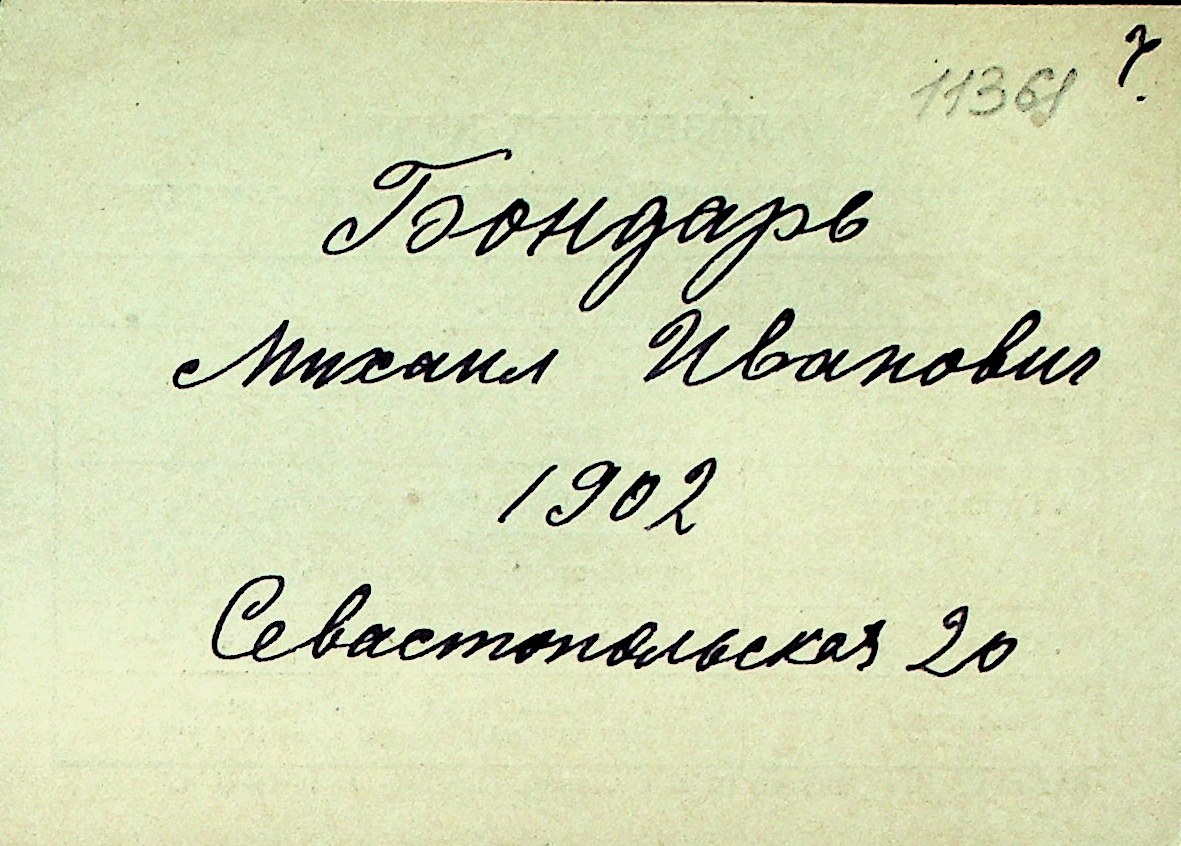 11361
Бондарь
Михаил Иванович
1902
Севастопольская 20